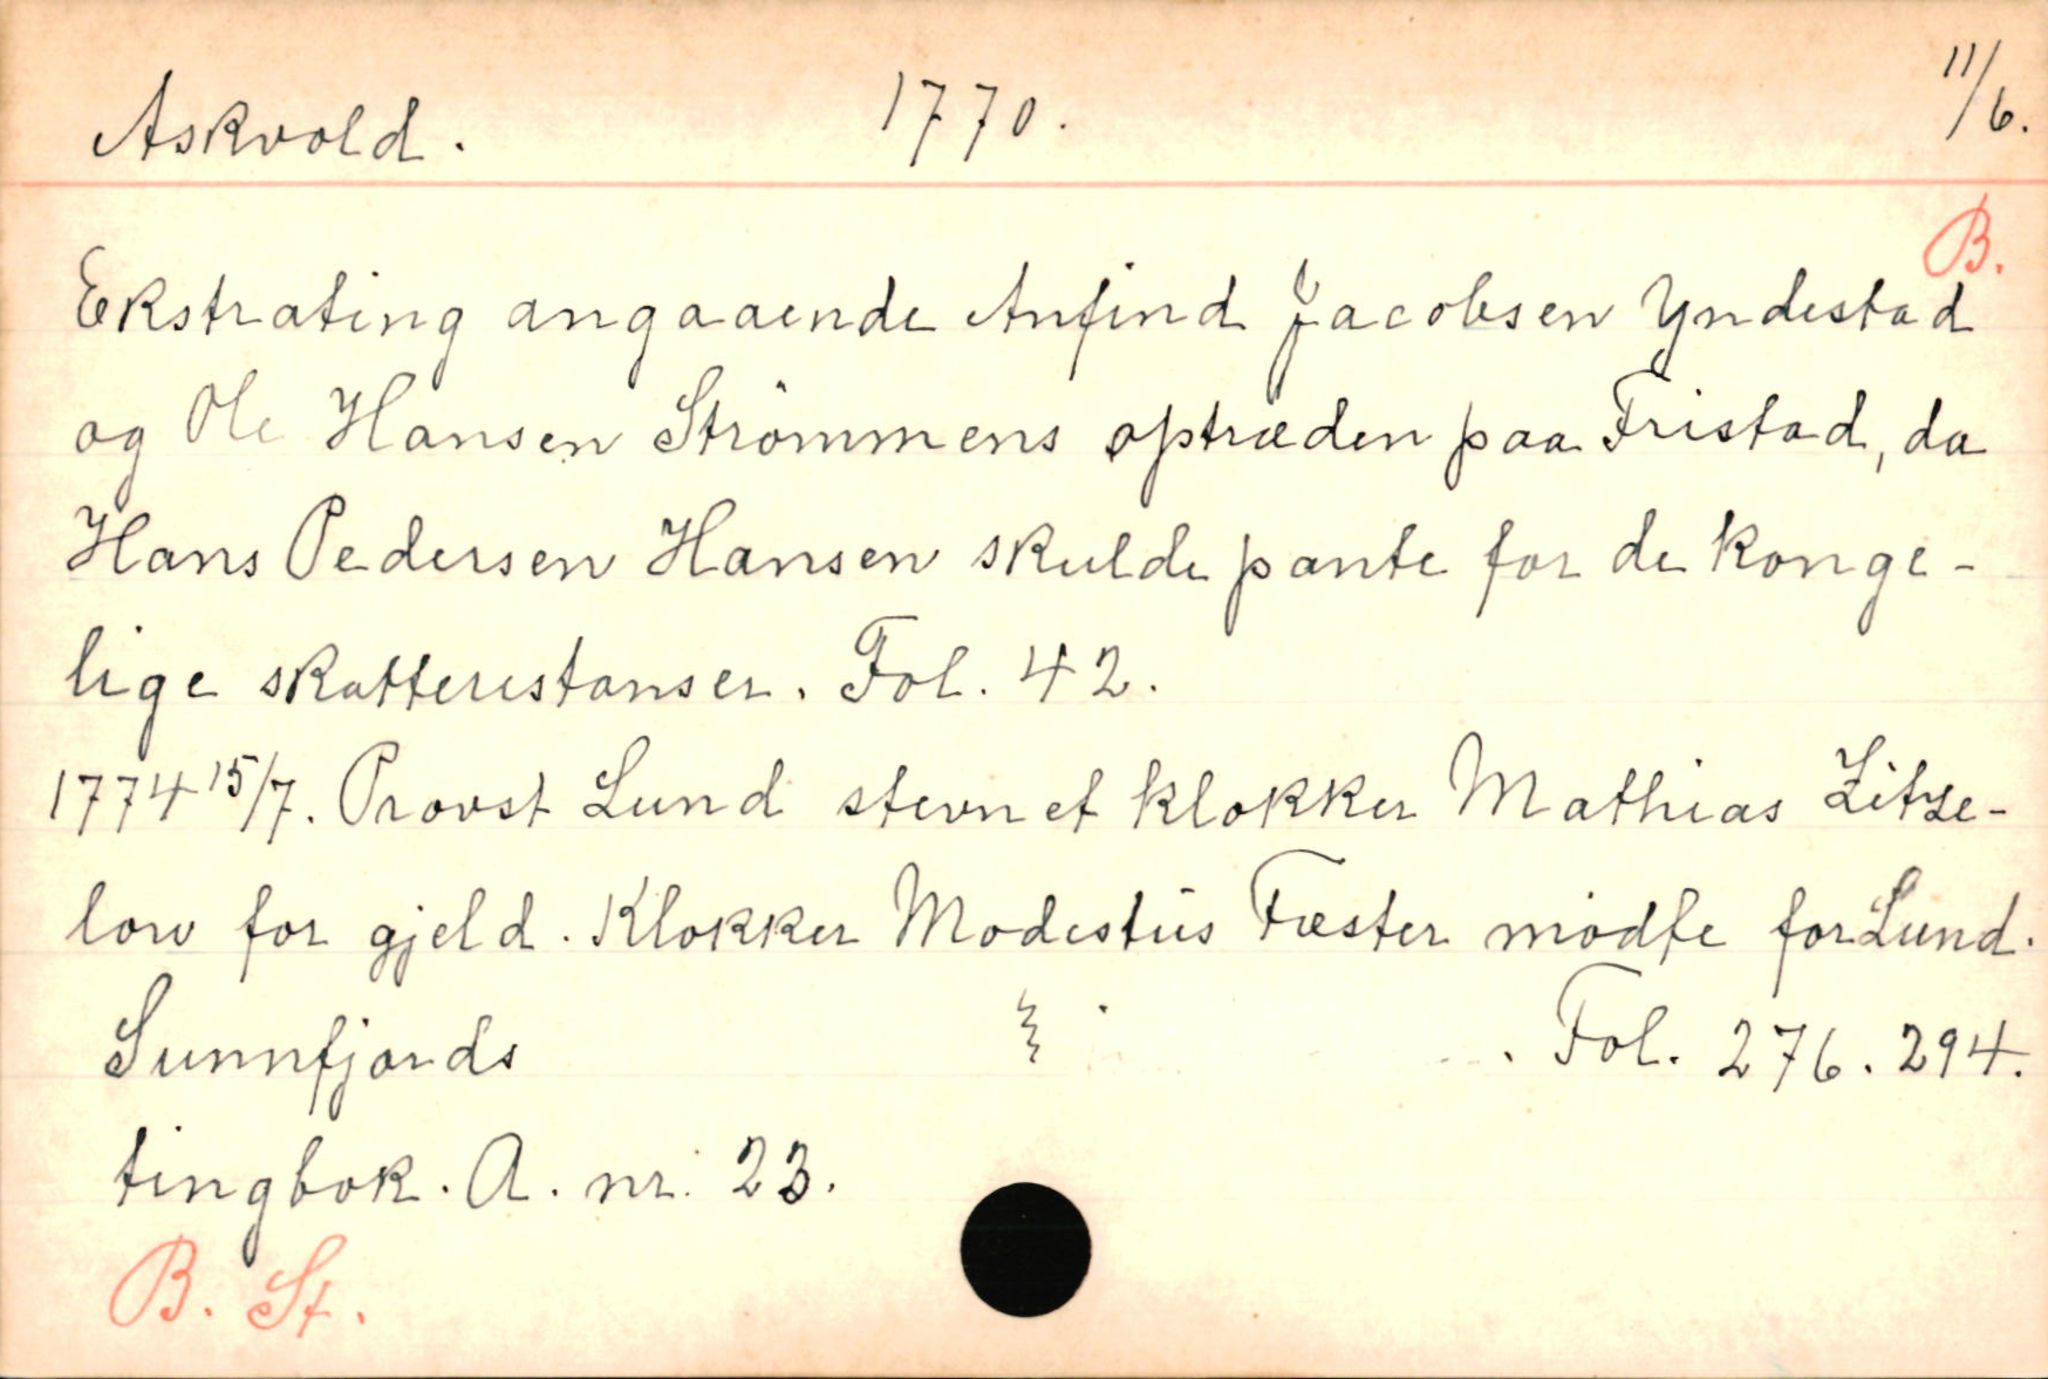 Askvold. 1770. 11/6.
B.
Ekstrating angaaende Anfind Jacobsen Yndestad
og Ole Hansen Strömmens optræden paa Fristad, da
Hans Pedersen Hansen skulde pante for de konge-
lige skatterestanser. Fol. 42.
1774 15/7. Provst Lund stevnet klokker Mathias Zitze-
low for gjeld. Klokker Modestus Fæster mödte for Lund.
Sunnfjords . Fol. 276. 294.
tingbok. A. nr. 23.
B. St.